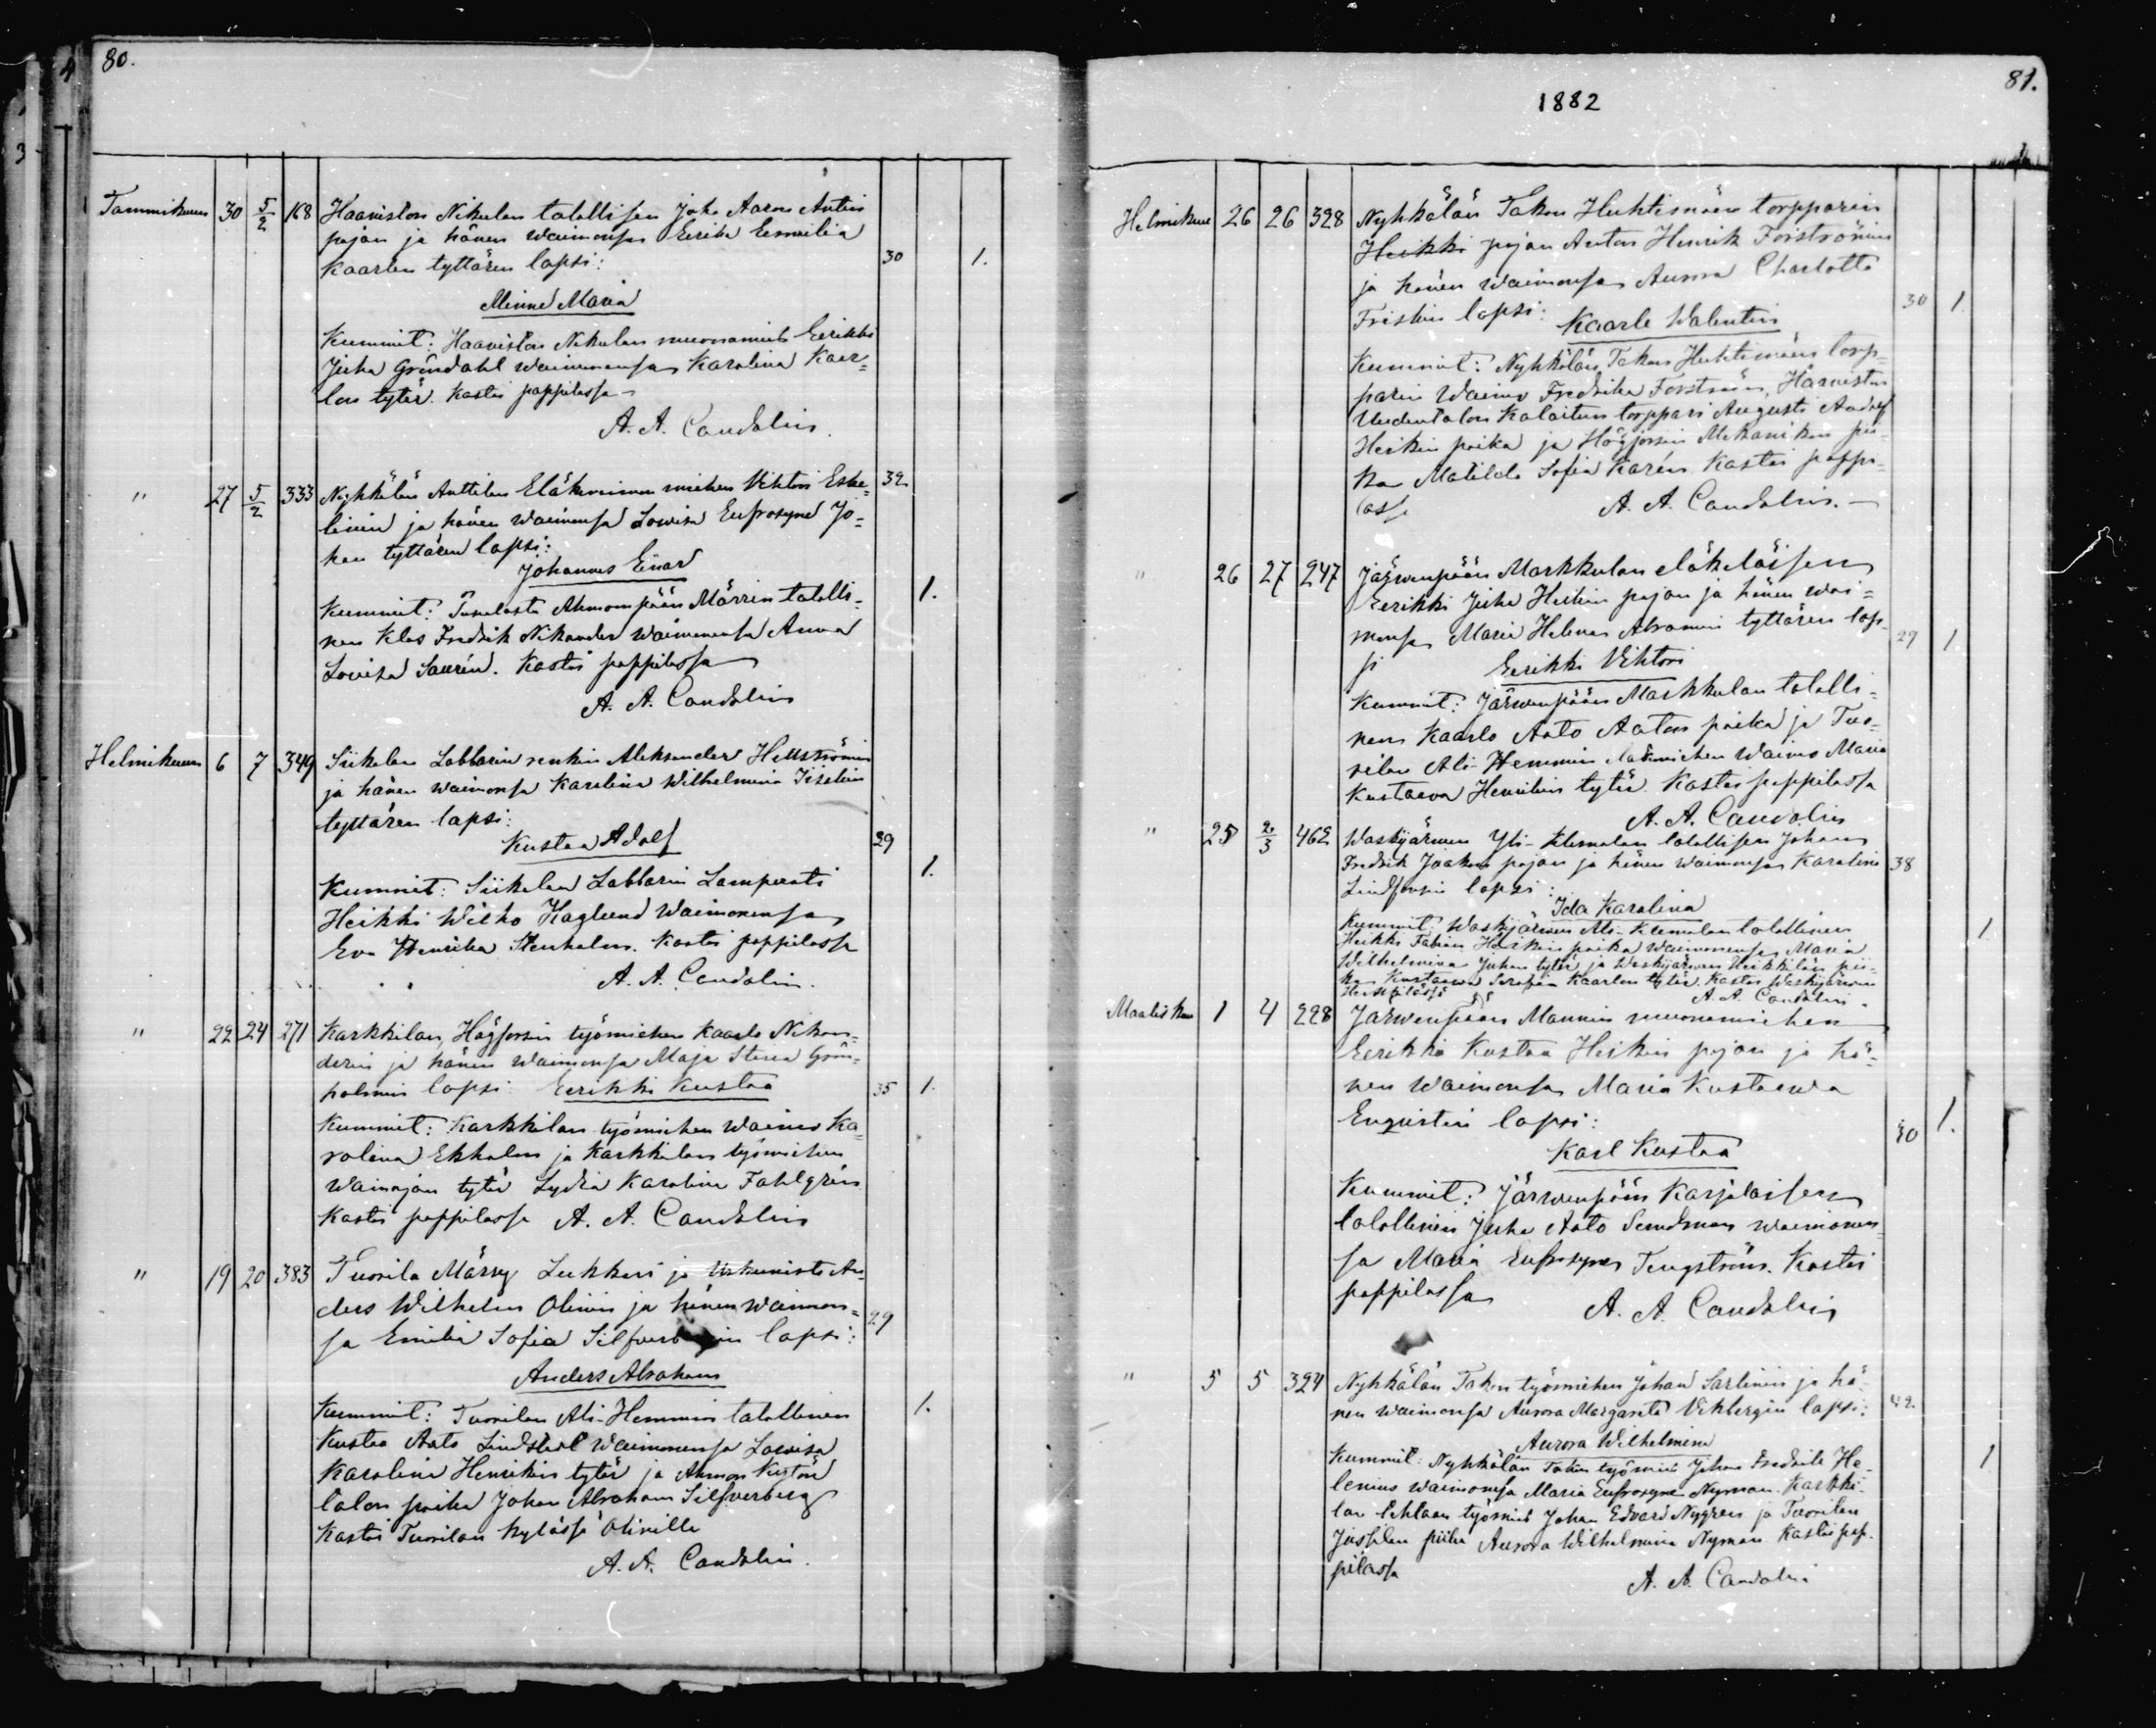 80.
Tammikuun 30 5/2 168 Haaviston Nikulan talollisen Juho Aaron Antin
pojan ja hänen waimonsa Eerika Eemeilia
Kaarlen tyttären lapsi: 30 1.
Minna Maria
Kummit: Haaviston Nikulan muonamies Eerikki
Juha Gröndahl waimonensa Karolina Kaar=
lon tytär. Kasti pappilassa
A. A. Candolin.
" 27 5/2 333 Nyhkälän Anttilan Eläkevaimon miehen Vihtori Eske= 32
linin ja hänen waimonsa Lowisa Eufrosyna Jo=
han tyttären lapsi:
Johannes Einar
Kummit: Pusulasta Ahmonpään Märrin talolli= 1.
nen Klas Fredrik Nikander waimonensa Anna
Lovisa Saurén. Kasti pappilassa
A. A. Candolin
Helmikuun 6 7 349 Siikalan Labbarin renkin Aleksander Hellströmin
ja hänen waimonsa Karolina Wilhelmina
tyttären lapsi:
Kustaa Adolf 29
Kummit: Siikalan Labbarin Lamperati 1.
Heikki Wilho Haglund waimonensa
Eva Henrika Stenholm. Kasti pappilassa
A. A. Candolin.
" 22 24 271 Karkkilan, Högforsin työmiehen Kaarlo Nikan=
derin ja hänen waimonsa Maja Stina Grön=
holmin lapsi: Eerikki Kustaa 35 1.
Kummit: Karkkilan työmiehen waimo Ka=
rolina Ekholm ja Karkkilan työmiehen
wainajan tytär Lydia Karolina Fahlgrén
Kasti pappilassa A. A. Candolin
" 19 20 383 Tuorila Märry Lukkari ja Urkunisti An=
ders Wilhelm Olinin ja hänen waimon=
sa Emilia Sofia lapsi: 29
Anders Abraham
Kummit: Tuorilan Ali-Hemmin talollinen 1.
Kustaa Aato Lindstedt waimonensa Lowisa
Karolina Henrikin tytär ja Ahmon
talon poika Johan Abraham Silfverberg
Kasti Tuorilan kylässä Olinilla
A. A. Candolin.
81.
1882
Helmikuu 26 26 328 Nyhkälän Takon Huhtimäen torpparin
Heikki pojan Anton Henrik Forströmin
ja hänen waimonsa Aurora Charlotta
Friskin lapsi: Kaarle Walentin 30 1
Kummit: Nyhkälän Takon Huhtimäen torp=
parin waimo Fredrika Forström, Haaviston
Uudentalon Kalaitun torppari Augusti Andolf
Heikin poika ja Högforsin Mekanikon pii=
ka Matilda Sofia Karén. Kasti pappi=
lassa A. A. Candolin.
" 26 27 247 Järwenpään Markkulan eläkeläisen
Eerikki Juha Heikin pojan ja hänen wai=
monsa Maria Helena Abramin tyttären lap=
si 29 1
Eerikki Vihtori
Kummit: Järwenpään Markkulan talolli=
nen Kaarlo Aato Aaton poika ja Tuo=
rilan Ali-Hemmin waimo Maria
Kustaava Henrikin tytär. Kasti pappilassa
A. A. Candolin
" 25 2/3 462 Waskijärwen Yli-Klemolan talollisen Johan
Fredrik Jaakon pojan ja hänen waimonsa Karolina 38
Lindforsin lapsi:
Ida Karolina
Kummit: Waskijärwen Ali-Klemolan talollinen 1
Heikki Fabian Heikin poika waimonensa Maria
Wilhelmina Juhan tytär ja Waskijärwen Heikkilän pii=
ka Kustaava Serafia Kaarlon tytär. Kasti Waskijärwen
Heikkilässä A. A. Candolin.
Maaliskuu 1 4 228 Järwenpään Mannin muonamiehen
Eerikki Kustaa Heikin pojan ja hä=
nen waimonsa Maria Kustaawa
Enqvistin lapsi: 30 1.
Karl Kustaa
Kummit: Järwenpään Karjalaisen
talollinen Juha Aato Sundman waimonen=
sa Maria Eufrosyna Tengström. Kasti
pappilassa A. A. Candolin
" 5 5 324 Nyhkälän Takon työmiehen Johan Sarlinin ja hä=
nen waimonsa Aurora Margareta Vikbergin lapsi: 42.
Aurora Wilhelmina
Kummit: Nyhkälän Takon työmies Johan Fredrik He= 1
lenius waimonsa Maria Eufrosyna Nyman. Karkki=
lan työmies Johan Edvard Nygren ja Tuorilan
Jussilan piika Aurora Wilhelmina Nyman Kasti pap=
pilassa
A. A. Candolin